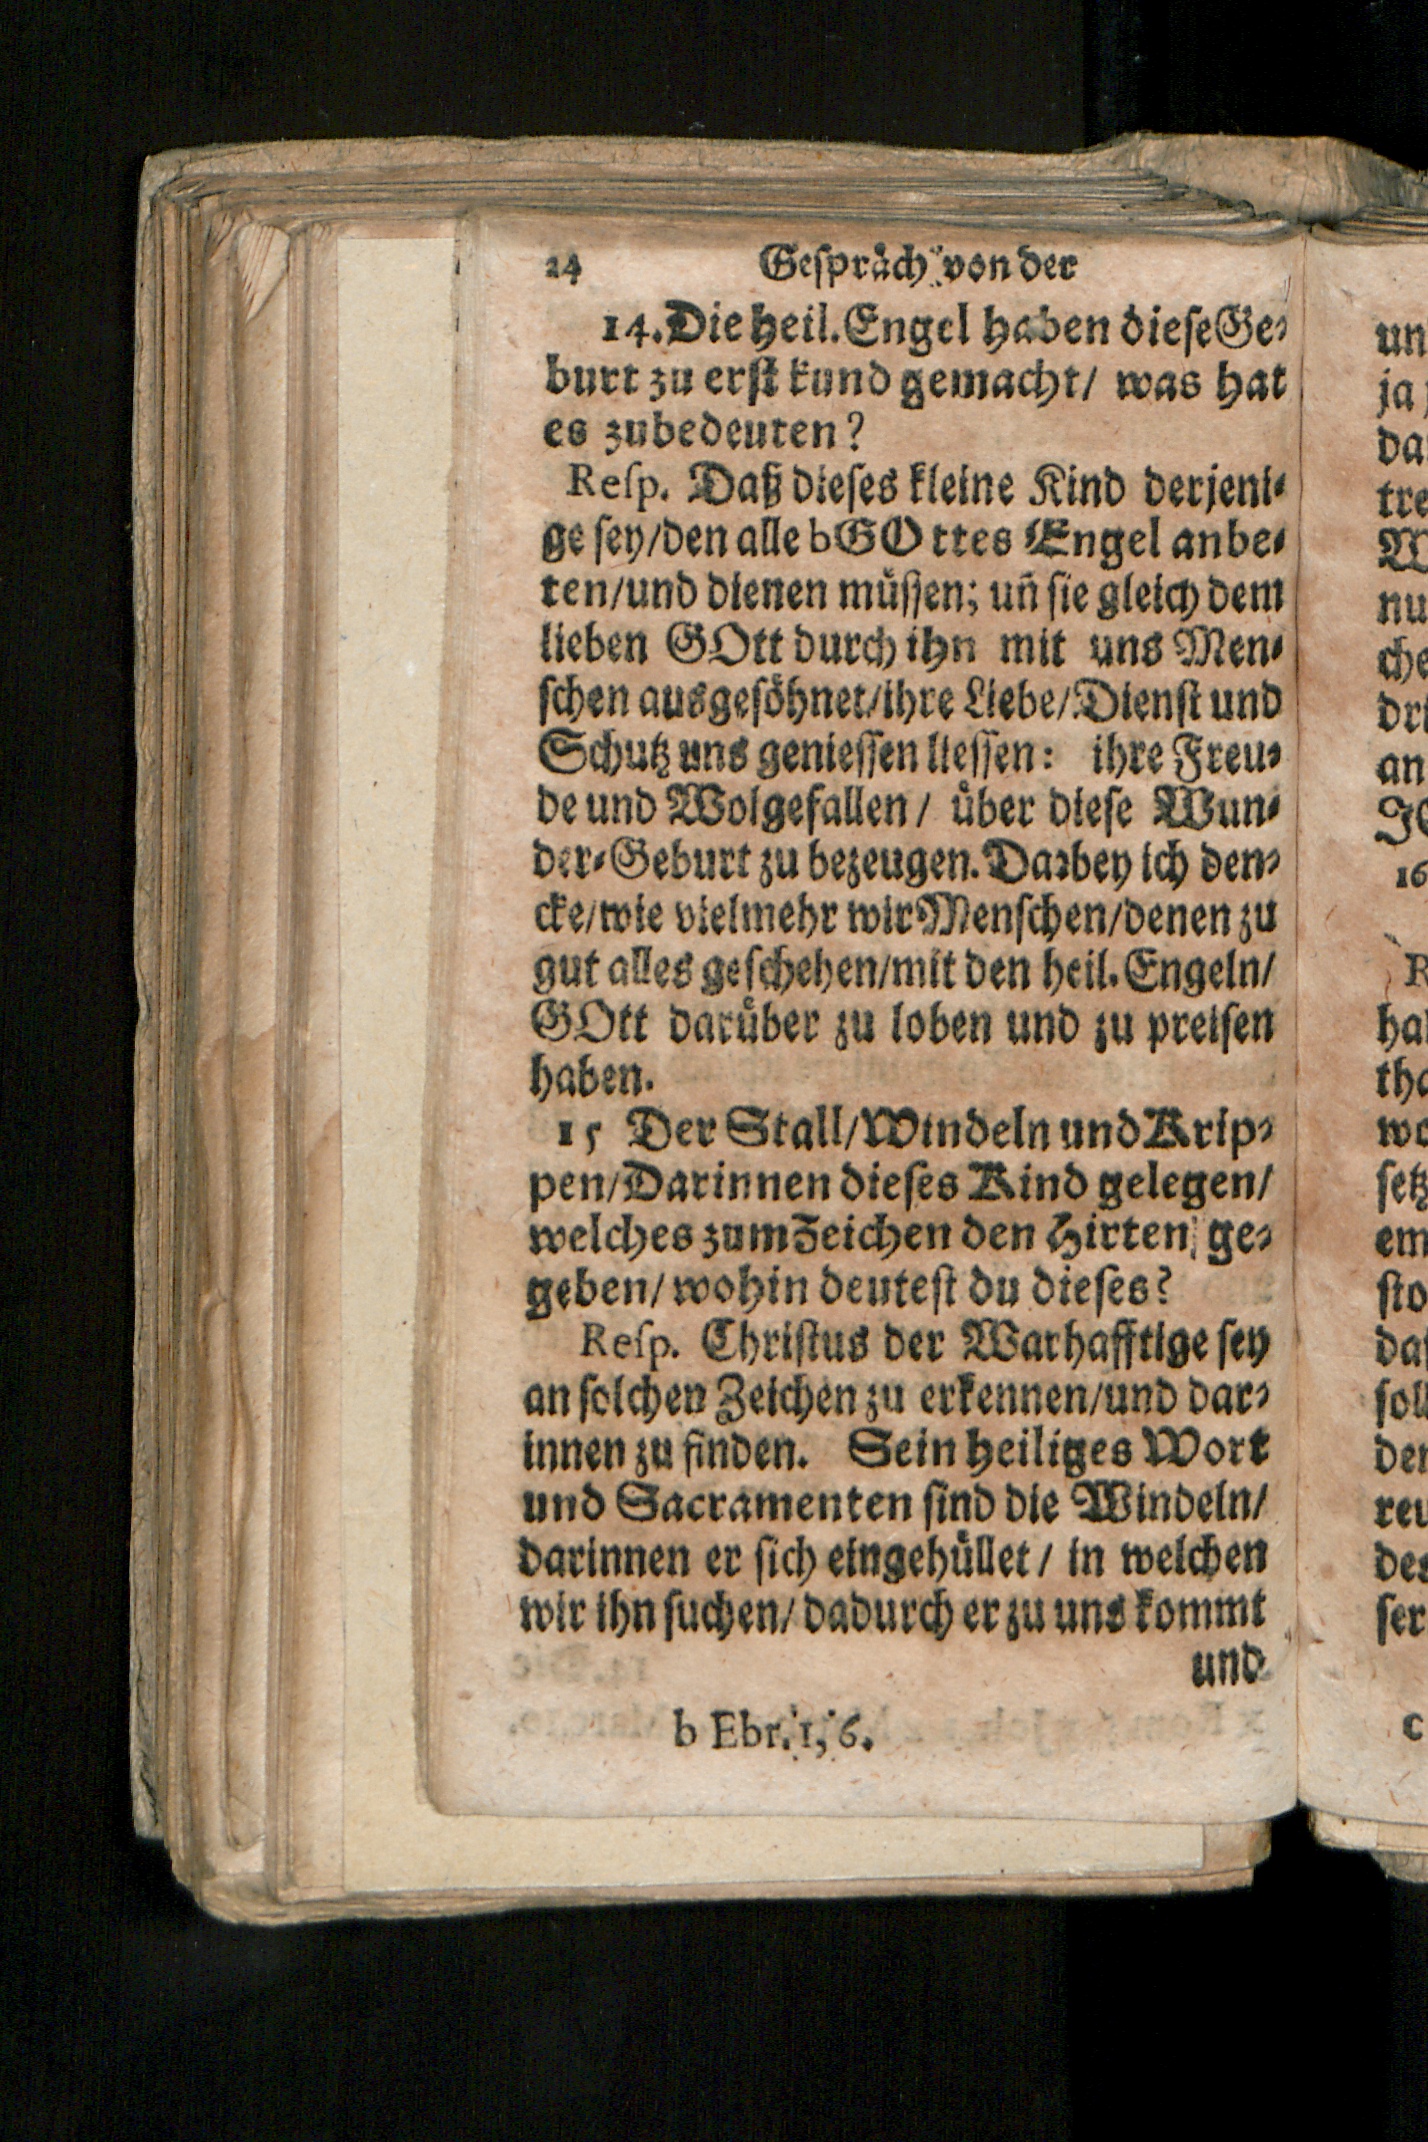 24 Gespräch von der
14. Die heil. Engel haben diese Ge-
burt zu erst kund gemacht/ was hat
es zubedeuten?
Resp. Daß dieses kleine Kind derjeni-
ge sey/den alle b GOttes Engel anbe-
ten/und dienen müssen; uñ sie gleich dem
lieben GOtt durch ihn mit uns Men-
schen ausgesöhnet/ihre Liebe/Dienst und
Schutz uns geniessen liessen: ihre Freu-
de und Wolgefallen/ über diese Wun-
der-Geburt zu bezeugen. Darbey ich den-
cke/wie vielmehr wir Menschen/denen zu
gut alles geschehen/mit den heil. Engeln/
GOtt darüber zu loben und zu preisen
haben.
15 Der Stall/Windeln und Krip-
pen/Darinnen dieses Kind gelegen/
welches zum Zeichen den Hirten ge-
geben/wohin deutest du dieses?
Resp. Christus der Warhafftige sey
an solchen Zeichen zu erkennen/und dar-
innen zu finden. Sein heiliges Wort
und Sacramenten sind die Windeln/
darinnen er sich eingehüllet/ in welchen
wir ihn suchen/dadurch er zu uns kommt
und
b Ebr. 1, 6.
un
ja
da
tre
W
nu
che
dri
an
JE
16
R
hal
tha
wo
setz
em
sto
das
soll
der
reu
des
ser
c